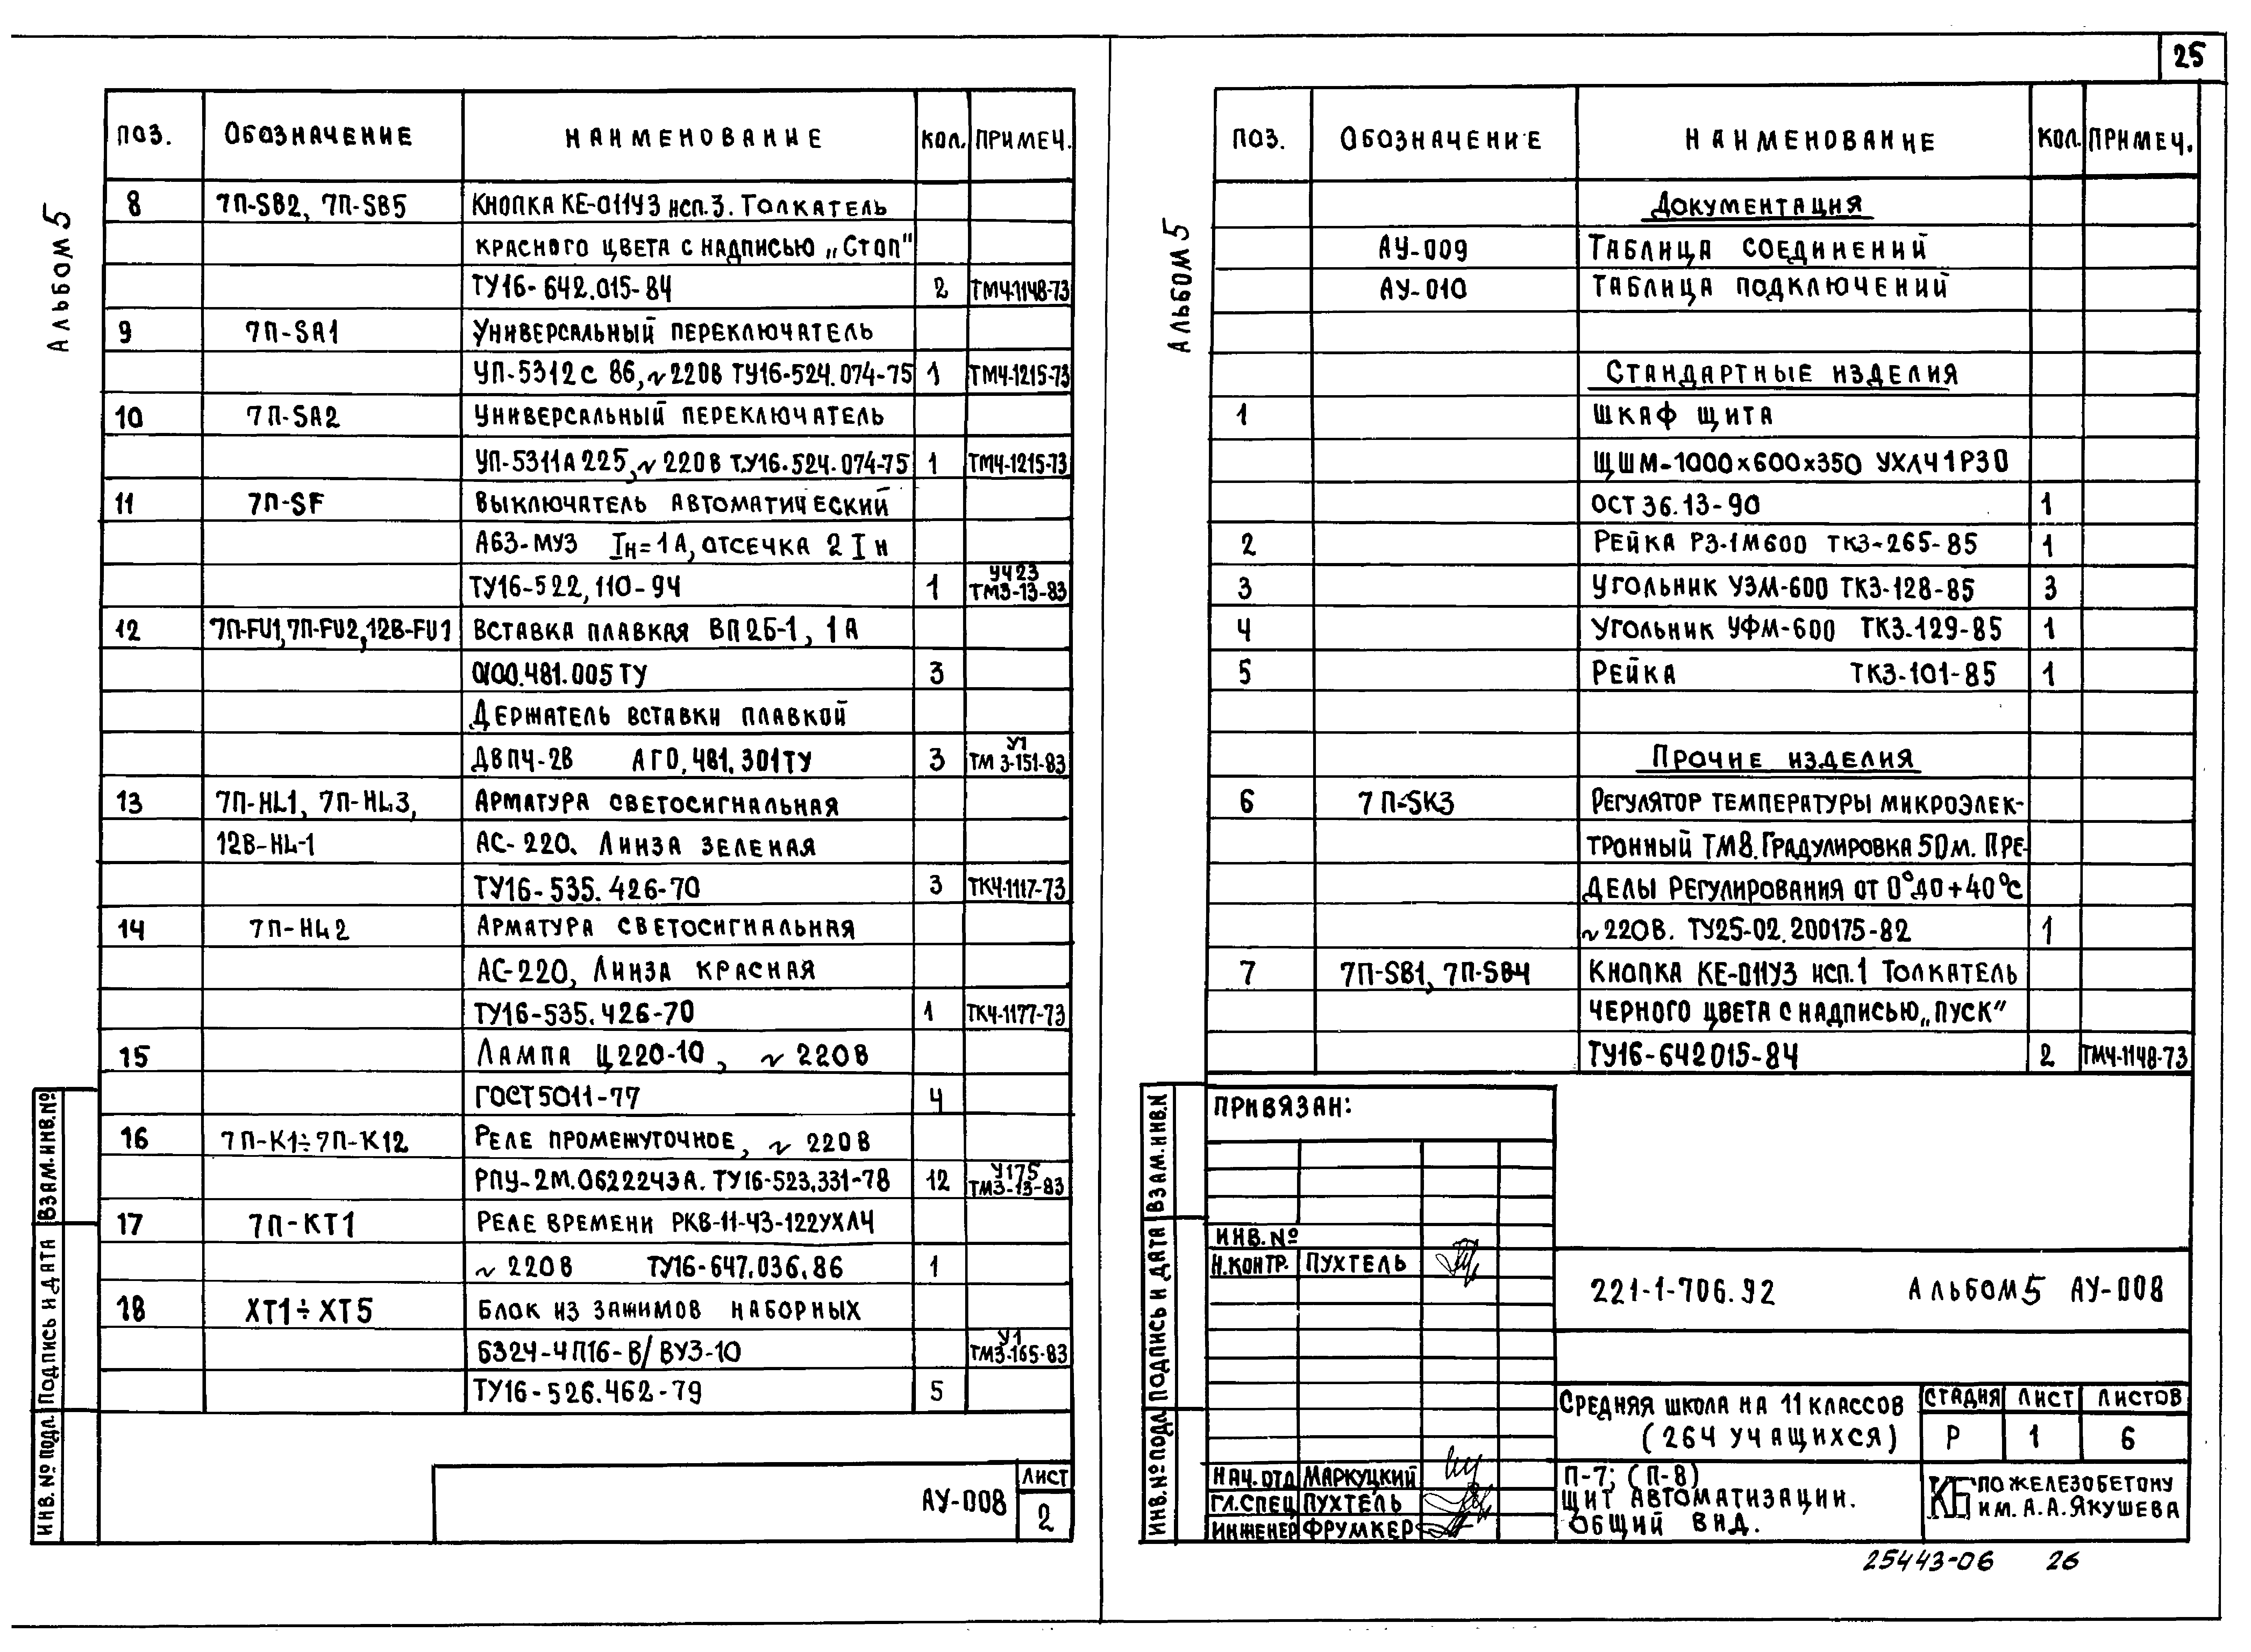 25
АЛЬБОМ 5
ПОЗ. ОБОЗНАЧЕНИЕ НАИМЕНОВАНИЕ КОЛ. ПРИМЕЧ.
8 7П-SB2, 7П-SB5 КНОПКА КЕ-011У3 ИСП.3. ТОЛКАТЕЛЬ
КРАСНОГО ЦВЕТА С НАДПИСЬЮ „СТОП"
ТУ16-642.015-84 2 ТМ4-1148-73
9 7П-SA1 УНИВЕРСАЛЬНЫЙ ПЕРЕКЛЮЧАТЕЛЬ
УП-5312С 86, ~220В ТУ16-524.074-75 1 ТМ4-1215-73
10 7П-SA2 УНИВЕРСАЛЬНЫЙ ПЕРЕКЛЮЧАТЕЛЬ
УП-5311А 225, ~220В ТУ16.524.074-75 1 ТМ4-1215-73
11 7П-SF ВЫКЛЮЧАТЕЛЬ АВТОМАТИЧЕСКИЙ
А63-МУ3 Iн=1А, ОТСЕЧКА 2Iн
ТУ16-522,110-94 1 У423 ТМ3-13-83
12 7П-FU1, 7П-FU2, 12В-FU1 ВСТАВКА ПЛАВКАЯ ВП2Б-1, 1А
0100.481.005 ТУ 3
ДЕРЖАТЕЛЬ ВСТАВКИ ПЛАВКОЙ
ДВП4-2В АГО.481.301ТУ 3 У1 ТМ 3-151-83
13 7П-HL1, 7П-HL3, АРМАТУРА СВЕТОСИГНАЛЬНАЯ
12В-HL-1 АС-220. ЛИНЗА ЗЕЛЕНАЯ
ТУ16-535.426-70 3 ТК4-1117-73
14 7П-HL2 АРМАТУРА СВЕТОСИГНАЛЬНАЯ
АС-220, ЛИНЗА КРАСНАЯ
ТУ16-535.426-70 1 ТК4-1177-73
15 ЛАМПА Ц220-10, ~220В
ГОСТ 5011-77 4
16 7П-К1÷7П-К12 РЕЛЕ ПРОМЕЖУТОЧНОЕ, ~220В
РПУ-2М.0622243А. ТУ16-523.331-78 12 У175 ТМ3-13-83
17 7П-КТ1 РЕЛЕ ВРЕМЕНИ РКВ-11-43-122УХЛ4
~220В ТУ16-647.036.86 1
18 ХТ1÷ХТ5 БЛОК ИЗ ЗАЖИМОВ НАБОРНЫХ
Б324-4П16-В/ВУ3-10 У1 ТМ3-165-83
ТУ16-526.462-79 5
ИНВ.№ПОДЛ. ПОДПИСЬ И ДАТА ВЗАМ.ИНВ.№
АУ-008 ЛИСТ
2
АЛЬБОМ 5
ПОЗ. ОБОЗНАЧЕНИЕ НАИМЕНОВАНИЕ КОЛ. ПРИМЕЧ.
ДОКУМЕНТАЦИЯ
АУ-009 ТАБЛИЦА СОЕДИНЕНИЙ
АУ-010 ТАБЛИЦА ПОДКЛЮЧЕНИЙ
СТАНДАРТНЫЕ ИЗДЕЛИЯ
1 ШКАФ ЩИТА
ЩШМ-1000х600х350 УХЛ41Р30
ОСТ 36.13-90 1
2 РЕЙКА Р3-1М600 ТК3-265-85 1
3 УГОЛЬНИК УЗМ-600 ТК3-128-85 3
4 УГОЛЬНИК УФМ-600 ТК3-129-85 1
5 РЕЙКА ТК3-101-85 1
ПРОЧИЕ ИЗДЕЛИЯ
6 7П-SK3 РЕГУЛЯТОР ТЕМПЕРАТУРЫ МИКРОЭЛЕК-
ТРОННЫЙ ТМ8. ГРАДУИРОВКА 50М. ПРЕ-
ДЕЛЫ РЕГУЛИРОВАНИЯ ОТ 0° ДО +40°С
~220В. ТУ25-02.200175-82 1
7 7П-SB1, 7П-SB4 КНОПКА КЕ-011У3 ИСП.1 ТОЛКАТЕЛЬ
ЧЕРНОГО ЦВЕТА С НАДПИСЬЮ „ПУСК"
ТУ16-642015-84 2 ТМ4-1148-73
ИНВ.№ПОДЛ ПОДПИСЬ И ДАТА ВЗАМ.ИНВ.N
ПРИВЯЗАН:
ИНВ.№
Н.КОНТР. ПУХТЕЛЬ
221-1-706.92 АЛЬБОМ 5 АУ-008
СРЕДНЯЯ ШКОЛА НА 11 КЛАССОВ
(264 УЧАЩИХСЯ)
СТАДИЯ ЛИСТ ЛИСТОВ
Р 1 6
НАЧ.ОТД МАРКУЦКИЙ
ГЛ.СПЕЦ ПУХТЕЛЬ
ИНЖЕНЕР ФРУМКЕР
П-7; (П-8)
ЩИТ АВТОМАТИЗАЦИИ.
ОБЩИЙ ВИД.
КБ ПО ЖЕЛЕЗОБЕТОНУ
ИМ. А.А.ЯКУШЕВА
25443-06 26